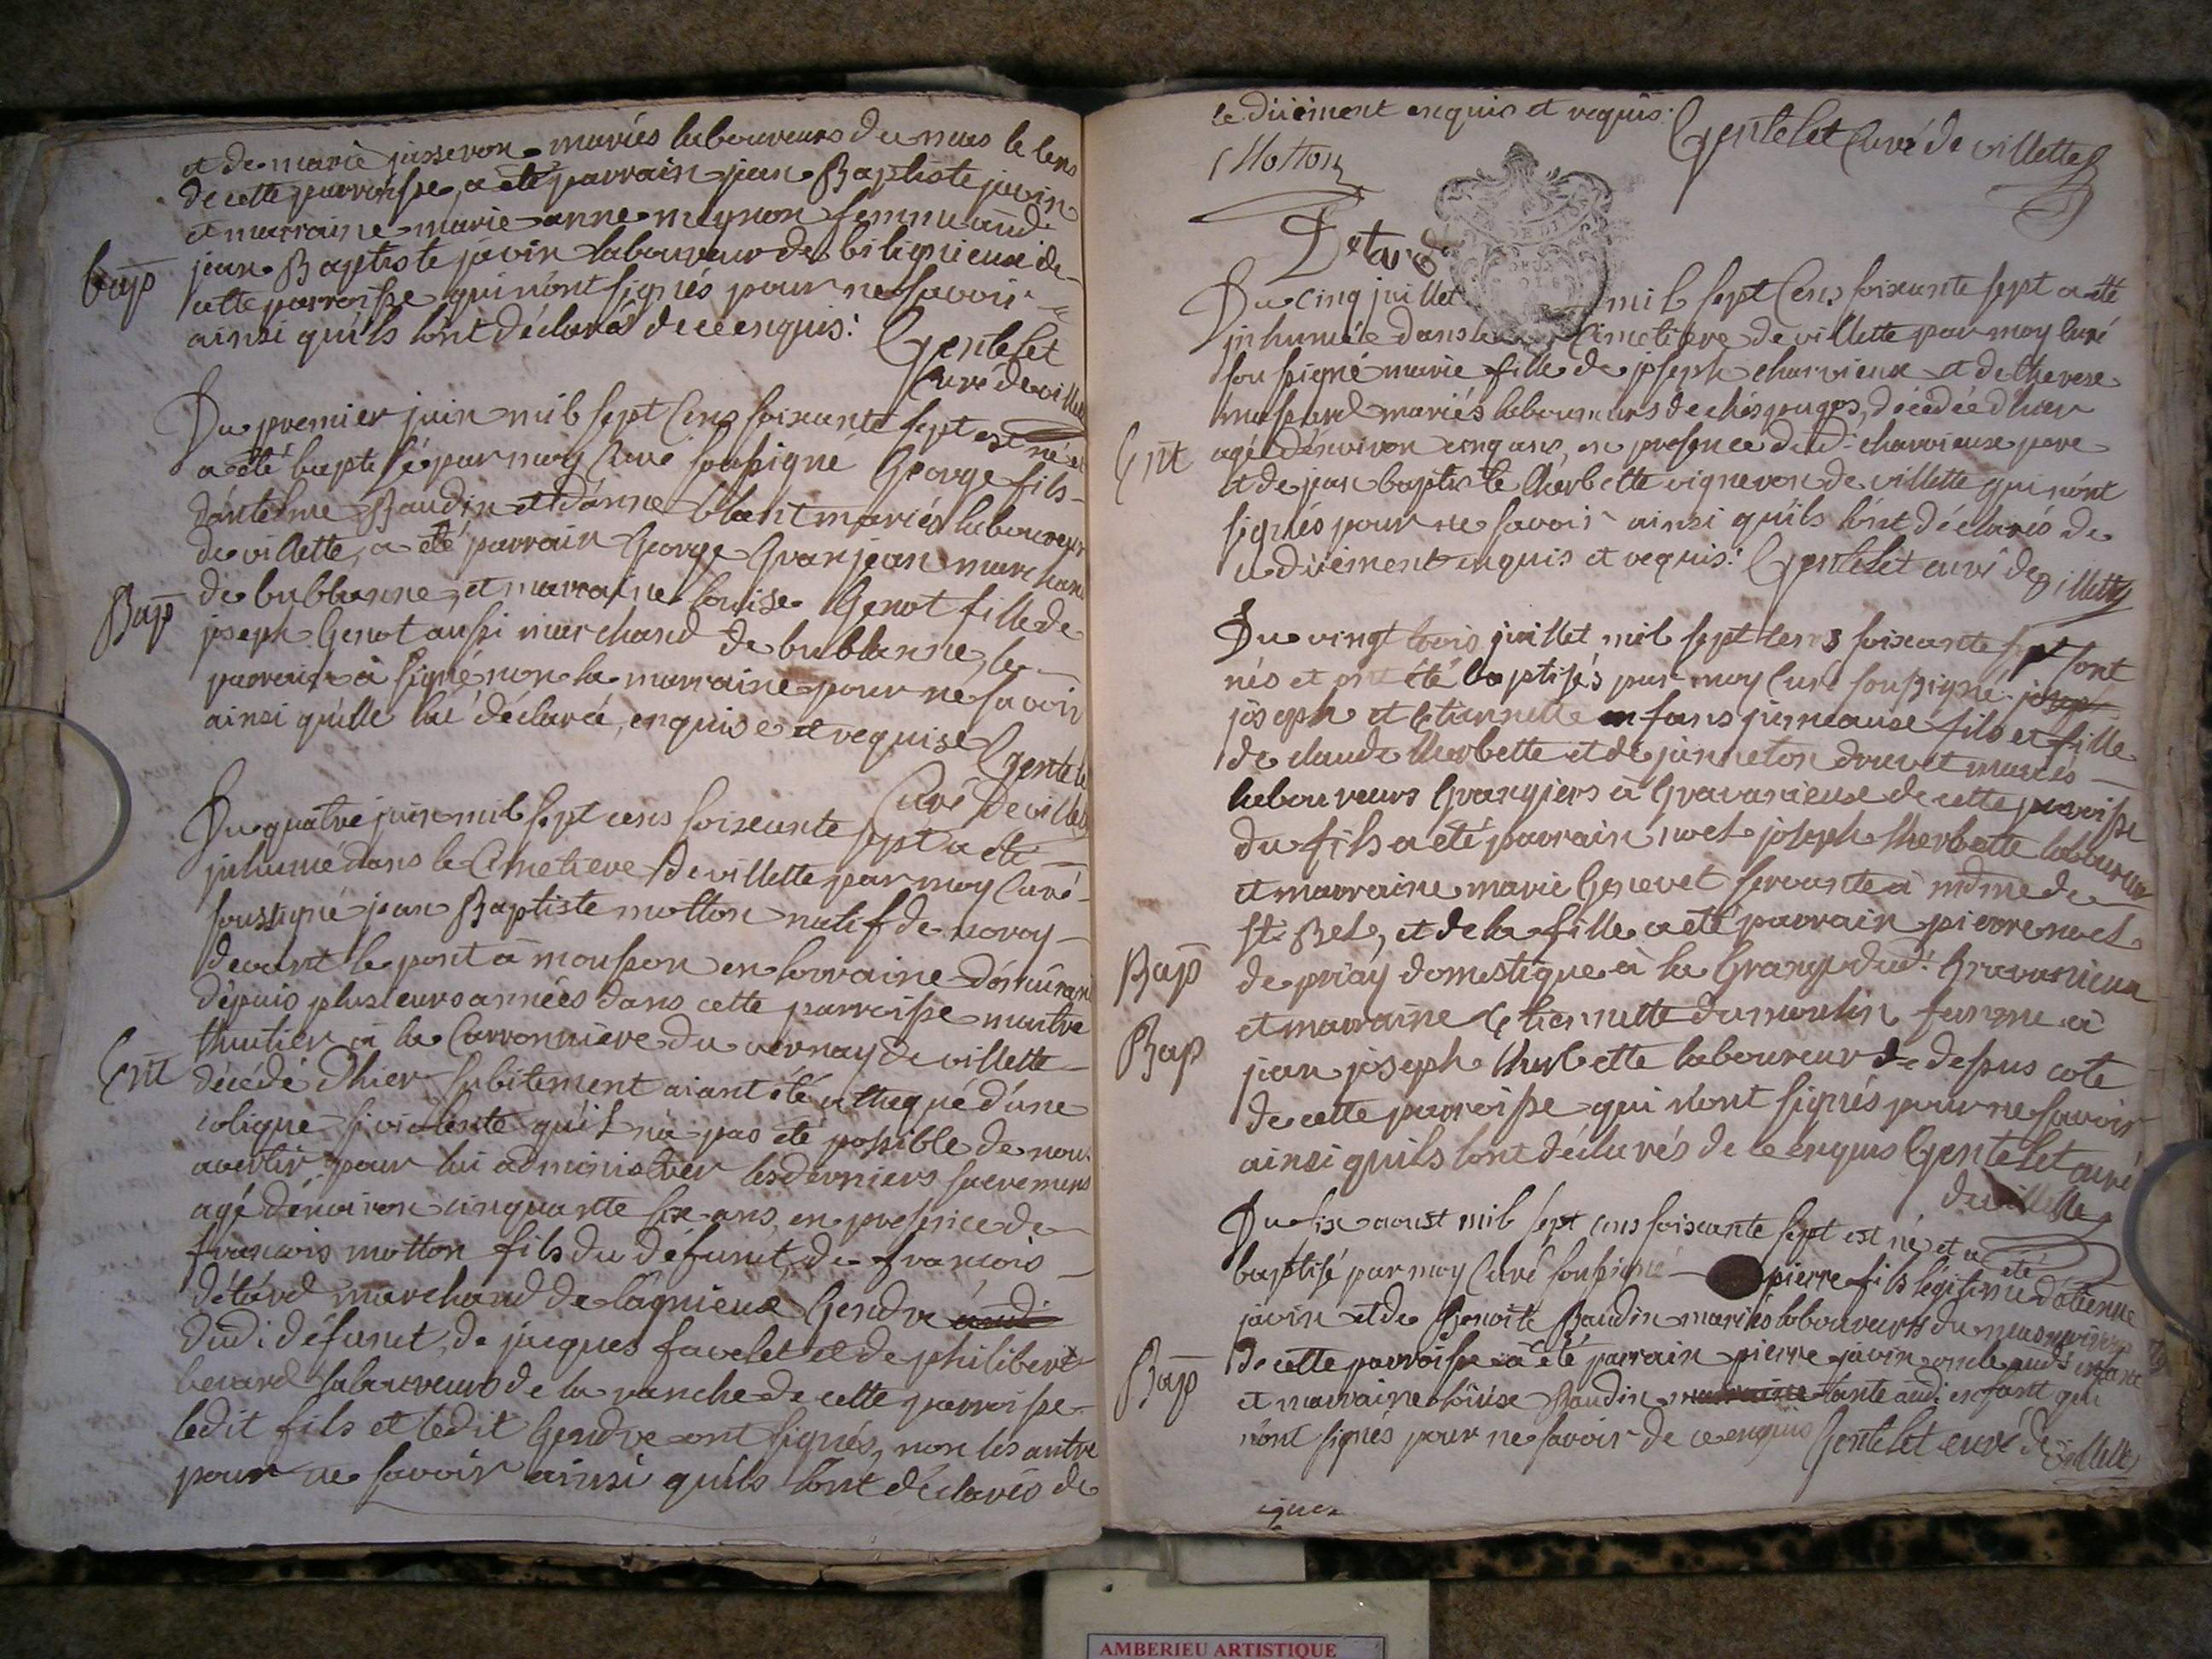 et de marie jusseron mariés laboureurs du mas le lens
de cette parroisse, a été parrain jean Baptiste javin
et marraine marie anne meynon femme aud.
Bap
jean Baptiste javin laboureur de biligneux de
cette parroisse qui n'ont signés pour ne savoir
ainsi qu'ils l'ont déclarés de ce enquis. Gentelet
Curé de villette
Du premier juin mil sept cens soixante sept est né et
a été baptisé par moy Curé soussigné George fils
d'antelme Baudin et d'anne blant mariés laboureurs
de villette, a été parrain George Granjean marchand
Bap
de bublanne, et marraine louise Genot fille de
joseph Genot aussi marchand de bublanne, le
parrain a signé non la marraine pour ne savoir
ainsi qu'elle l'a déclaré, enquise et requise Gentelet
Curé de villette
Du quatre juin mil sept cens soixante sept a été
jnhumé dans le Cimetiere de villette par moy Curé
soussigné jean Baptiste motton natif de
devant le pont à mousson en lorraine demeurant
depuis plusieurs années dans cette parroisse maitre
thuilier à la Carronniere du vernay de villette
Ent
décédé d'hier subitement aiant été attaqué d'une
colique si violente qu'il n'a pas été possible de nous
avertir pour lui administrer les derniers sacremens
agé d'environ cinquante six ans, en presence de
francois motton fils du défunt, de francois
détard marchand de lagnieux Gendre aud.
dud. défunt, de jacques favelet et de philibert
berard laboureurs de la ranche de cette parroisse
ledit fils et ledit Gendre ont signés, non les autre
pour ne savoir ainsi qu'ils l'ont déclarés de
ce düement enquis et requis. Gentelet Curé de villette
Motton
Detard
Du cinq juillet mil sept Cens soixante sept a été
jnhumée dans le Cimetiere de villette par moy Curé
soussigné marie fille de joseph charvieux et de therese
mariés laboureurs de décédée d'hier
Ent
agé d'environ cinq ans, en presence dud. charvieux pere
et de jean baptiste therbette vigneron de villette qui n'ont
signés pour ne savoir ainsi qu'ils l'ont déclarés de
ce düement enquis et requis. Gentelet curé de villette
Du vingt trois juillet mil sept cens soixante sept sont
nés et ont été baptisés par moy Curé soussigné joseph
joseph et Etiennette enfans jumeaux fils et fille
de claude therbette et de janneton druet mariés
laboureurs Grangiers à Gravanieux de cette parroisse
du fils a été parrain noel joseph therbette laboureur
et marraine marie Genevet servante à mdme de
Bap
st. Bel, et de la fille a été parrain pierre noel
de priay domestique à la Grange dud. Gravanieux
Bap
et marraine Etiennette dumoulin femme à
jean joseph therbette laboureur de dessus cote
de cette parroisse qui n'ont signés pour ne savoir
ainsi qu'ils l'ont déclarés de ce enquis Gentelet curé
de villette
Du six aoust mil sept cens soixante sept est né et a été
baptisé par moy Curé soussigné pierre fils légitime d'étienne
javin et de Benoite Baudin mariés laboureurs du mas
Bap
de cette parroisse a été parrain pierre javin oncle aud. enfant
et marraine loüise Baudin marraine tante aud. enfant qui
n'ont signés pour ne savoir de ce enquis Gentelet curé de villette
AMBERIEU ARTISTIQUE